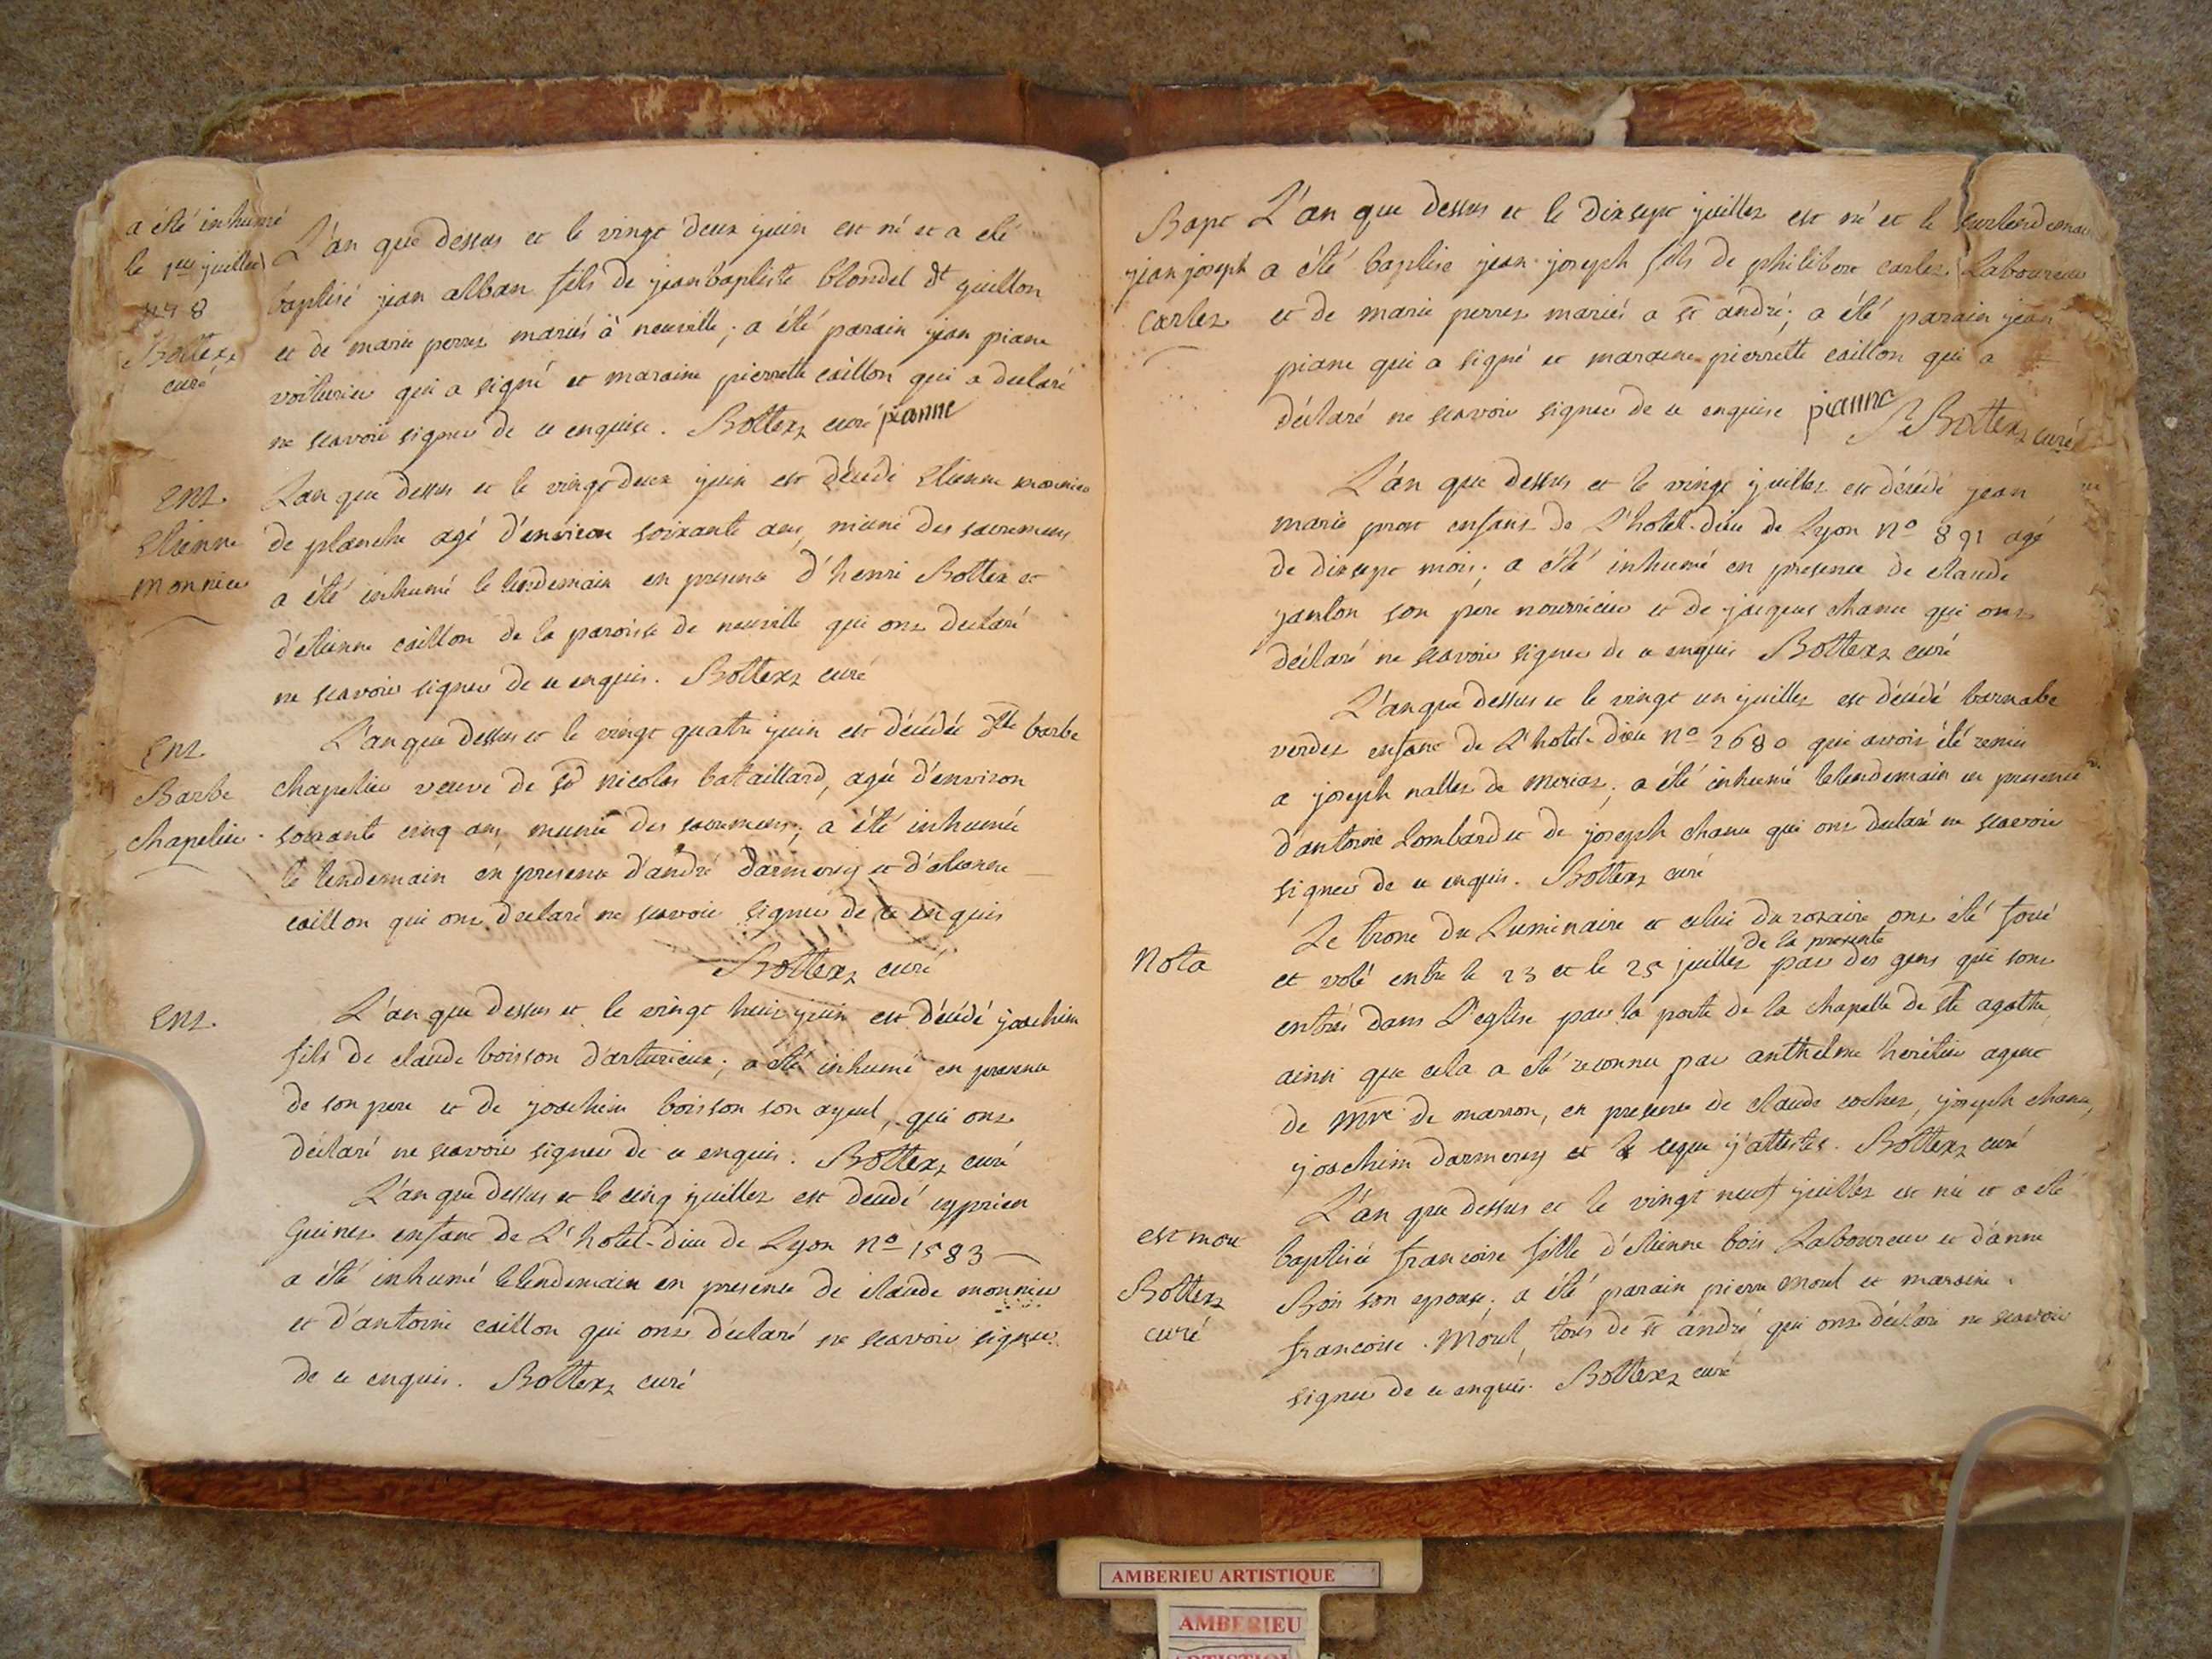 a été inhumé
le 1er juillet
Bottex
curé
L'an que dessus et le vingt deux juin est né et a été
baptisé jean alban fils de jean baptiste blondel dt guillon
et de marie perret mariés à neuville; a été parain jean piane
voiturier qui a signé et maraine pierrette caillon qui a declaré
ne scavoir signer de ce enquise. Bottex curé pianne
Ent
Etienne
monnier
L'an que dessus et le vingt deux juin est décédé Etienne monnier
de planche agé d'environ soixante ans, muni des sacremens
a été inhumé le lendemain en presence d'henri Bottex et
d'etienne caillon de la paroisse de neuville qui ont declaré
ne scavoir signer de ce enquis. Bottex curé
Ent
Barbe
chapelier
L'an que dessus et le vingt quatre juin est décédée dlle barbe
chapelier veuve de sr nicolas bataillard, agée d'environ
soixante cinq ans, munie des sacremens; a été inhumée
le lendemain en presence d'andré darmerey et d'etienne
caillon qui ont declaré ne scavoir signer de ce enquis
Bottex curé
Ent
L'an que dessus et le vingt huit juin est décédé joachim
fils de claude boisson d'arturieux; a été inhumé en presence
de son pere et de joachim boisson son ayeul, qui ont
déclaré ne scavoir signer de ce enquis. Bottex curé
L'an que dessus et le cinq juillet est decedé cyprien
Guinet enfant de L'hotel-dieu de Lyon no 1583
a été inhumé le lendemain en presence de claude monnier
et d'antoine caillon qui ont déclaré ne scavoir signer
de ce enquis. Bottex curé
Bapt
jean joseph
carlet
L'an que dessus et le dix sept juillet est né et le surlendemain
a été baptisé jean joseph fils de philibert carlet Laboureur
et de marie perret mariés a st andré; a été parain jean
piane qui a signé et maraine pierrette caillon qui a
déclaré ne scavoir signer de ce enquise pianne
Bottex curé
L'an que dessus et le vingt juillet est décédé jean
marie pront enfant de L'hotel-dieu de Lyon no 891 agé
de dix sept mois; a été inhumé en presence de claude
janton son pere nourricier et de jacques chanu qui ont
déclaré ne scavoir signer de ce enquis Bottex curé
L'an que dessus et le vingt un juillet est décédé barnabé
verdet enfant de L'hotel-dieu no 2680 qui avoit été remis
a joseph nallet de meriat; a été inhumé le lendemain en presence
d'antoine Lombard et de joseph chanu qui ont declaré ne scavoir
signer de ce enquis. Bottex curé
Nota
Le tronc du Luminaire et celui du rosaire ont été forcé
de la presente
et volé entre le 23 et le 25 juillet par des gens qui sont
entrés dans L'eglise par la porte de la chapelle de ste agathe,
ainsi que cela a été reconnu par anthelme heritier agent
de Mre de marron, en presence de claude cochet, joseph chanu,
joachim darmerey et ce que j'atteste. Bottex curé
est mort
Bottex
curé
L'an que dessus et le vingt neuf juillet est née et a été
baptisée francoise fille d'etienne bois Laboureur et d'anne
Bois son epouse; a été parain pierre morel et maraine
francoise Morel, tous de st andré qui ont déclaré ne scavoir
signer de ce enquis. Bottex curé
AMBERIEU ARTISTIQUE
AMBERIEU
ARTISTIQUE